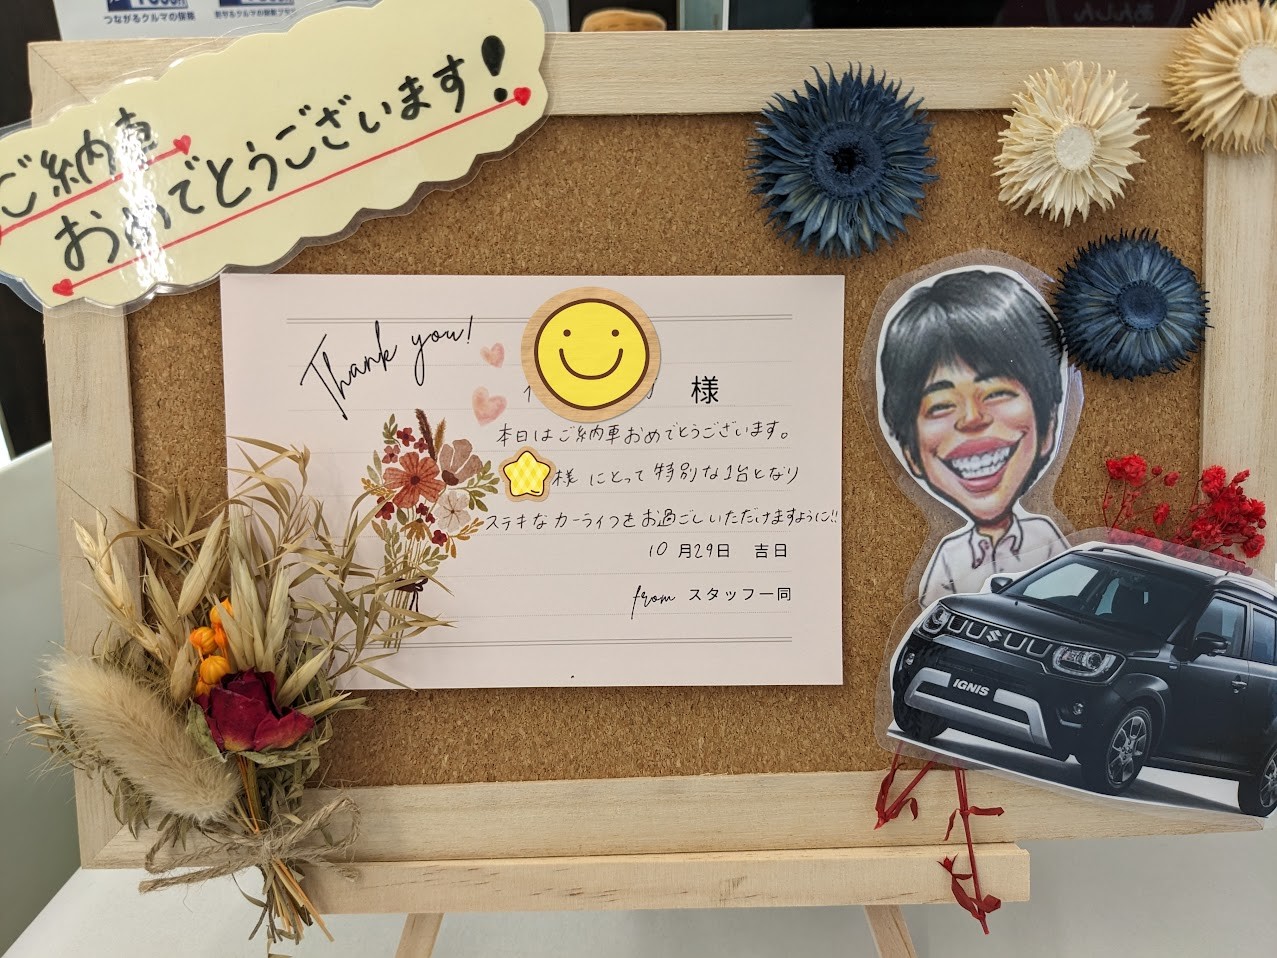 つながるクルマの保険
ご納車
おめでとうございます!
Thank you!
様
本日はご納車おめでとうございます。
様 にとって 特別な1台となり
ステキな カーライフを お過ごし いただけますように!!
10 月29日 吉日
from スタッフ一同
IGNIS